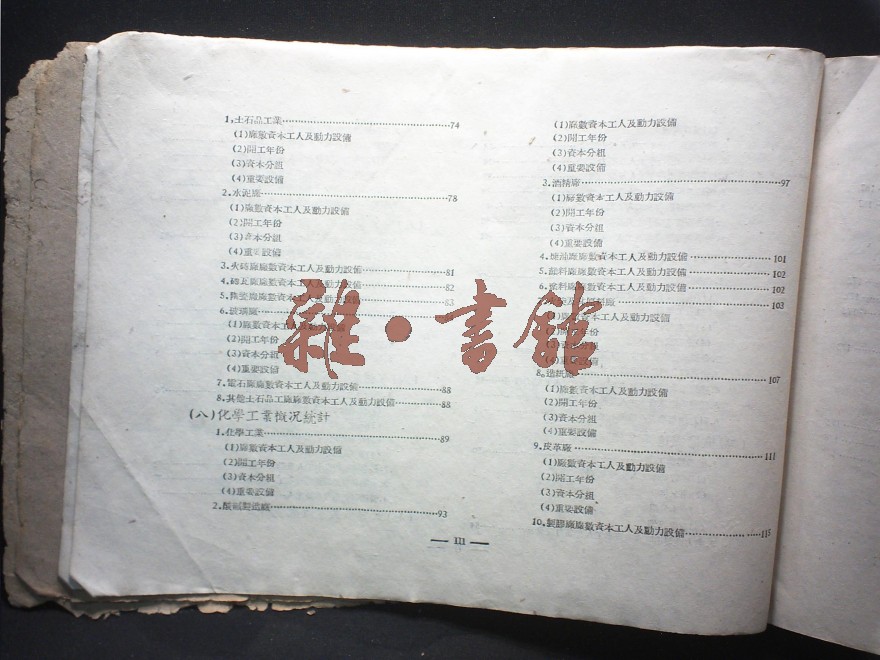 1,土石品工業 74
(1)廠數資本工人及動力設備
(2)開工年份
(3)資本分組
(4)重要設備
2.水泥廠 78
(1)廠數資本工人及動力設備
(2)開工年份
(3)資本分組
(4)重要設備
3.火磚廠廠數資本工人及動力設備 81
4.磚瓦廠廠數資本工人及動力設備 82
5.陶瓷廠廠數資本工人及動力設備 83
6.玻璃廠
(1)廠數資本工人及動力設備
(2)開工年份
(3)資本分組
(4)重要設備
7.電石廠廠數資本工人及動力設備 88
8.其他土石品工廠廠數資本工人及動力設備 88
(八)化學工業概況統計
1.化學工業 89
(1)廠數資本工人及動力設備
(2)開工年份
(3)資本分組
(4)重要設備
2.酸碱製造廠 93
(1)廠數資本工人及動力設備
(2)開工年份
(3)資本分組
(4)重要設備
3.酒精廠 97
(1)廠數資本工人及動力設備
(2)開工年份
(3)資本分組
(4)重要設備
4.煉油廠廠數資本工人及動力設備 101
5.顏料廠廠數資本工人及動力設備 102
6.塗料廠廠數資本工人及動力設備 102
103
(1)廠數資本工人及動力設備
(2)開工年份
(3)資本分組
(4)重要設備
8.造紙廠 107
(1)廠數資本工人及動力設備
(2)開工年份
(3)資本分組
(4)重要設備
9.皮革廠 111
(1)廠數資本工人及動力設備
(2)開工年份
(3)資本分組
(4)重要設備
10.製膠廠廠數資本工人及動力設備 115
— III —
雜·書館